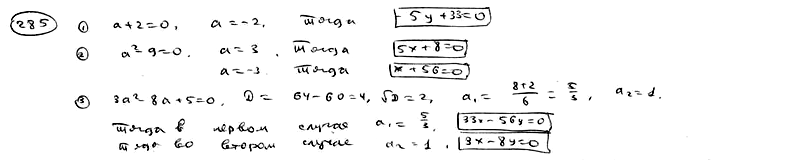 285 ① a+2=0, a=-2, тогда -5y+33=0
② a²-9=0. a=3, тогда 5x+8=0
a=-3. тогда x+56=0
③ 3a²-8a+5=0, D= 64-60=4, √D=2, a₁= (8+2)/6 = 5/3, a₂=1.
тогда в первом случае a₁= 5/3, 33x-56y=0
тогда во втором случае a₂=1, 3x-8y=0